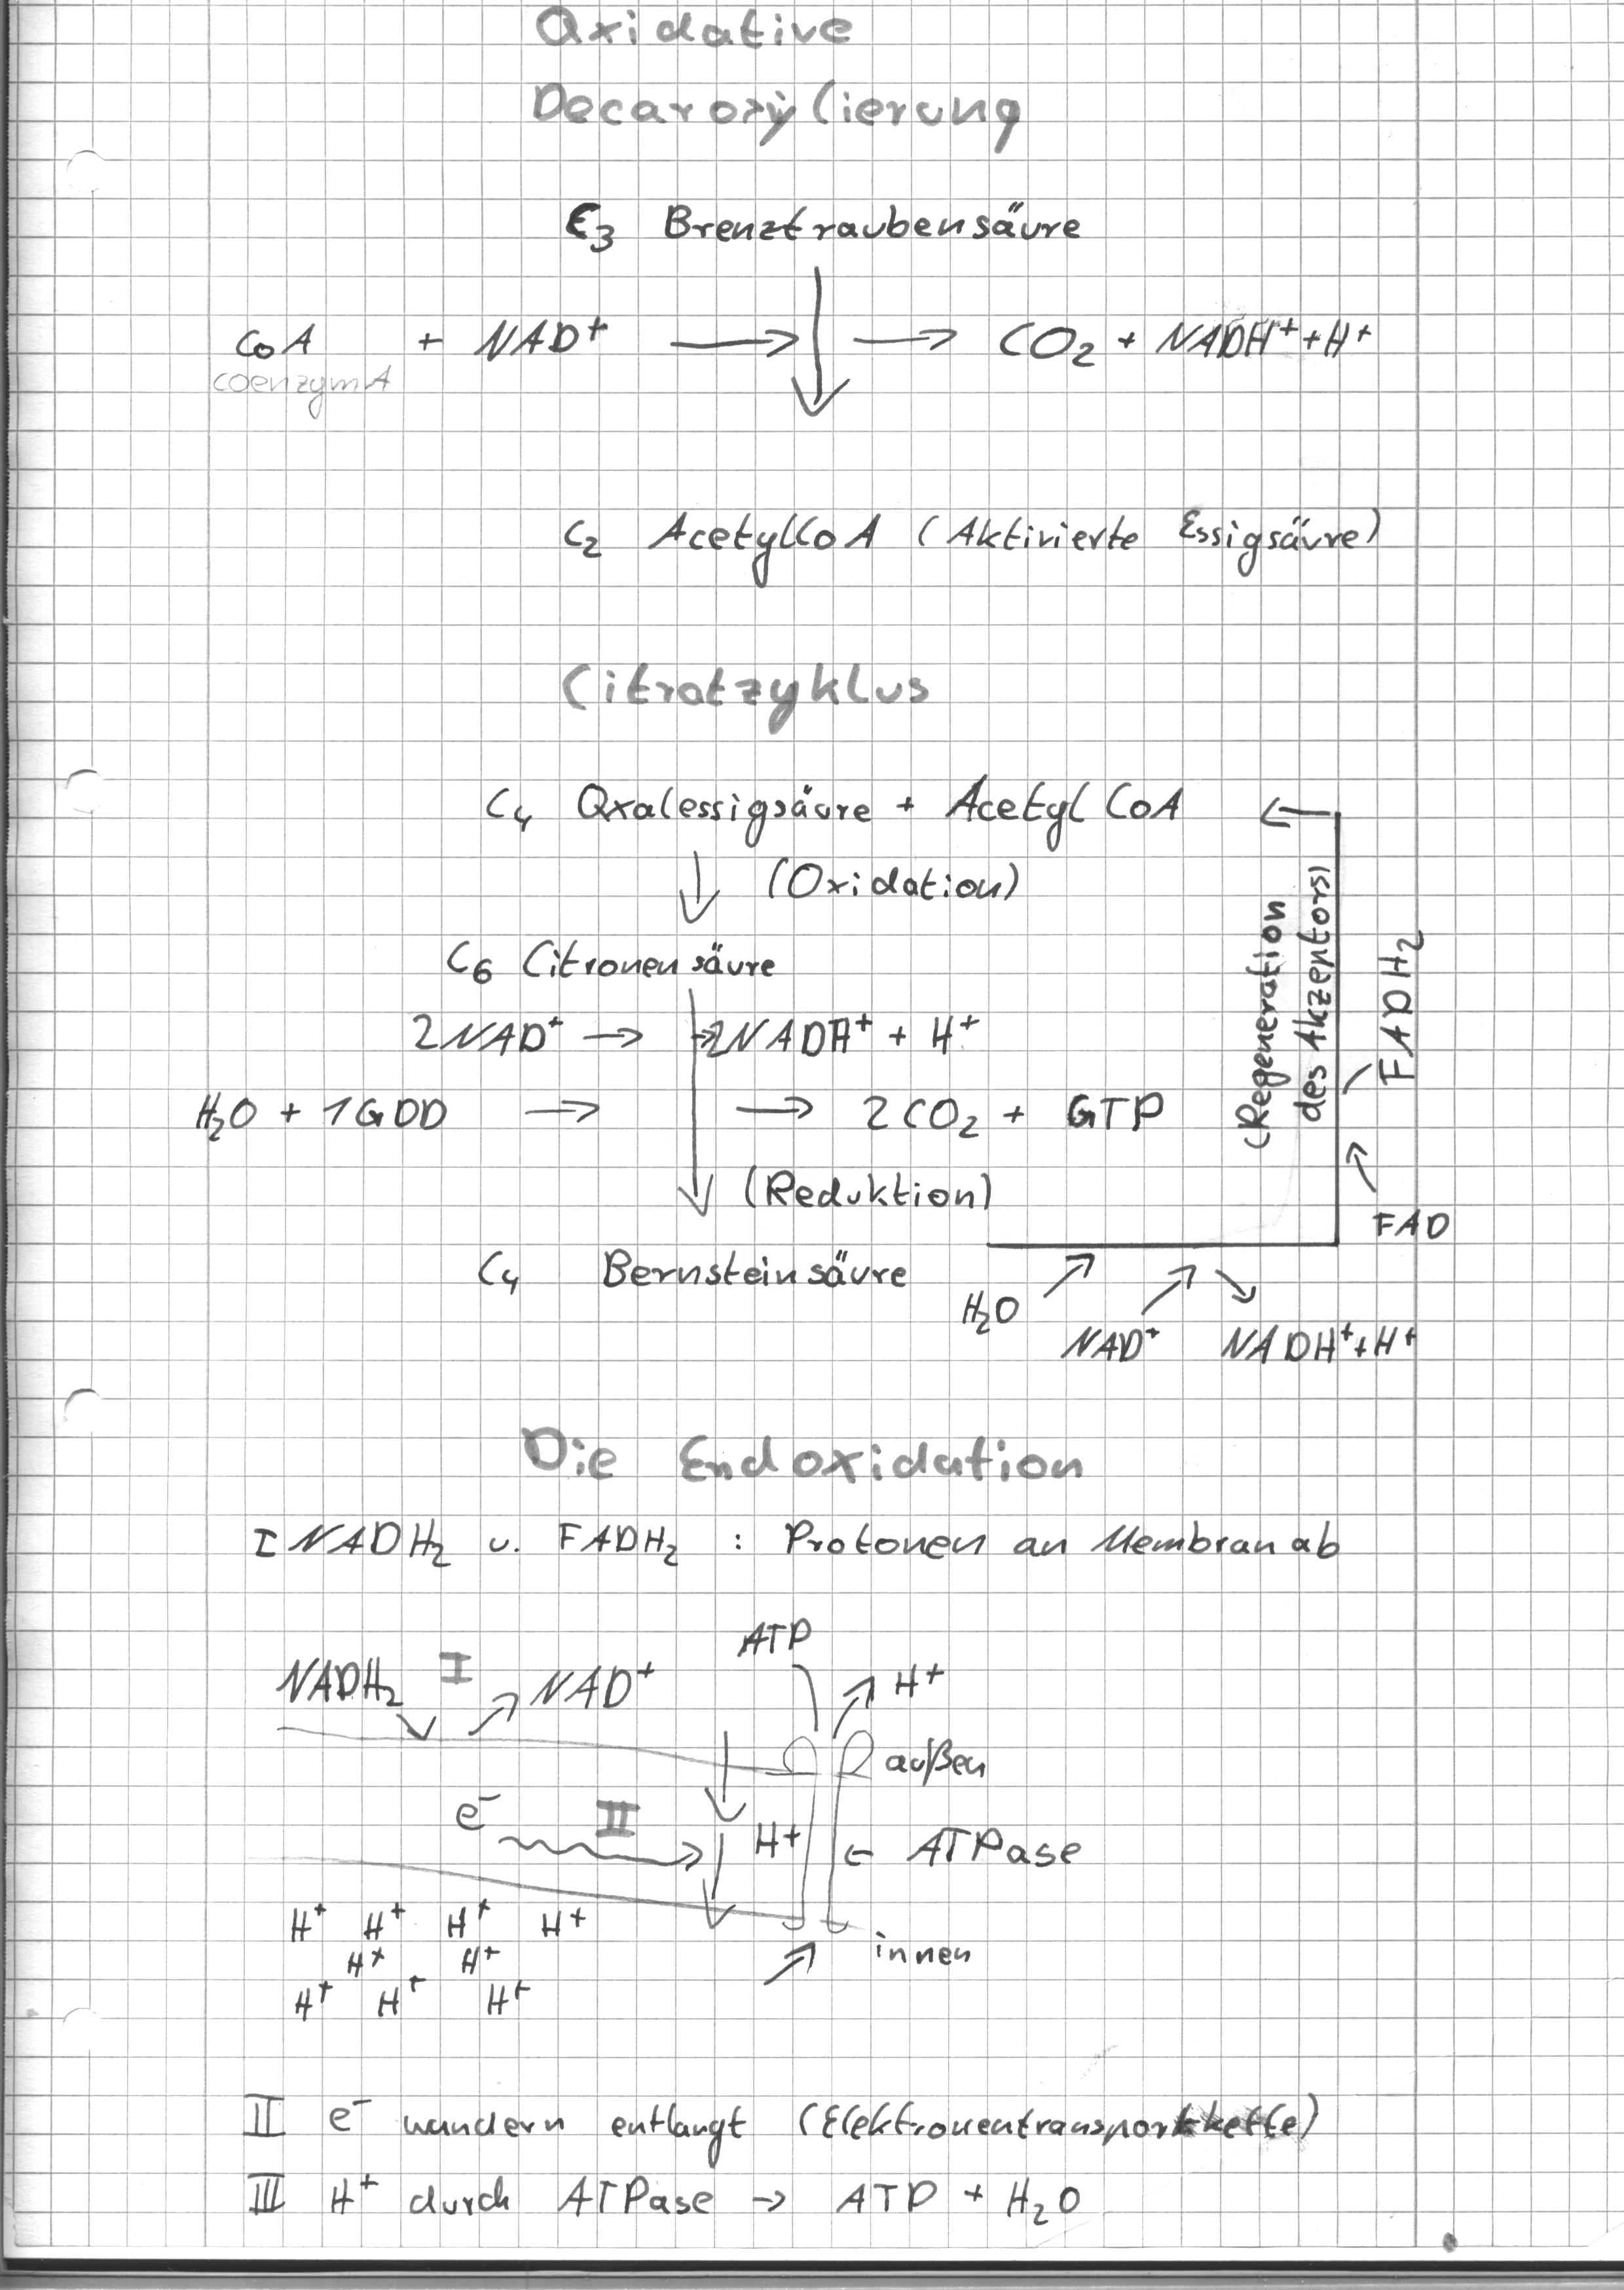 Oxidative
Decaroxylierung
C3 Brenztraubensäure
CoA + NAD+ → → CO2 + NADH+ + H+
coenzym A
C2 AcetylCoA (Aktivierte Essigsäure)
Citratzyklus
C4 Oxalessigsäure + Acetyl CoA
(Oxidation)
C6 Citronensäure
2NAD+ → → 2NADH+ + H+
H2O + 1GDD → → 2CO2 + GTP
(Reduktion)
C4 Bernsteinsäure
(Regeneration
des Akzentors)
FADH2
FAD
H2O
NAD+
NADH+ + H+
Die Endoxidation
I NADH2 u. FADH2 : Protonen an Membran ab
ATP
NADH2 I NAD+ H+
außen
e- II H+ ← ATPase
H+ H+ H+ H+
innen
H+ H+
H+ H+ H+
II e- wandern entlangt (Elektronentransportkette)
III H+ durch ATPase → ATP + H2O